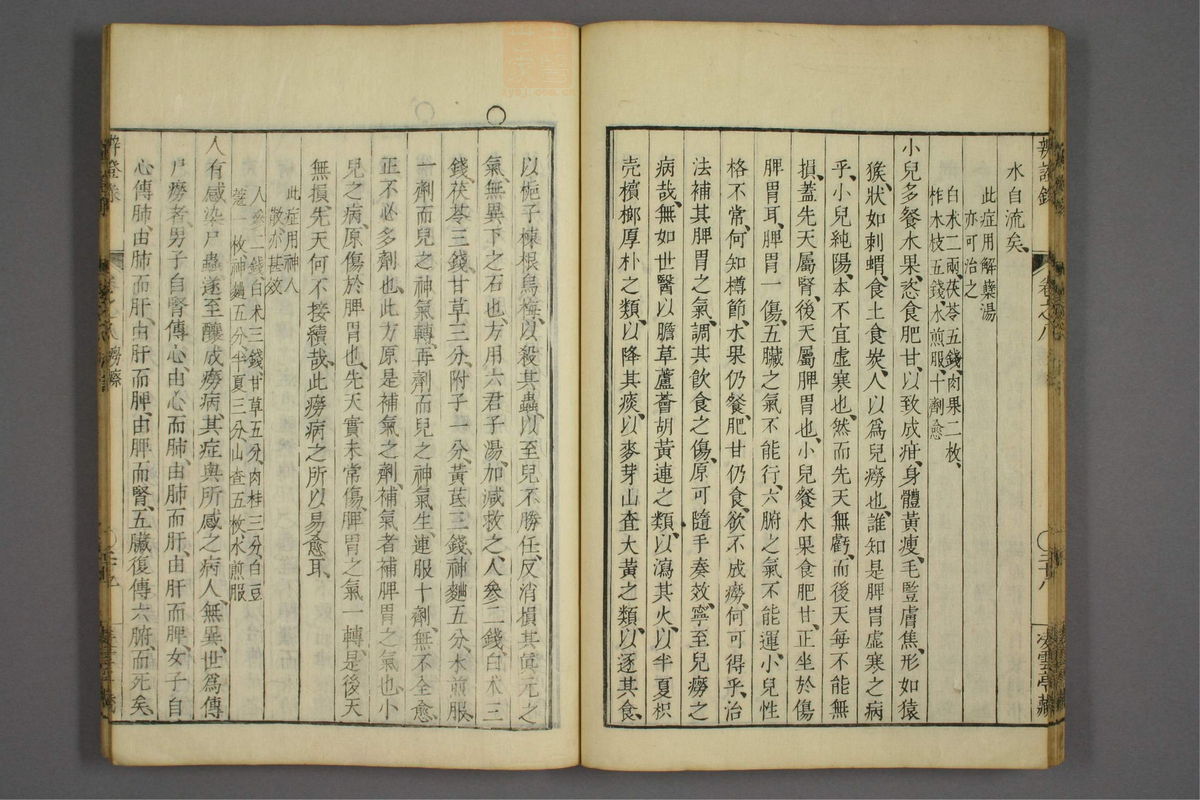 辨證錄
卷之八
三十八
凌雲亭藏
水自流矣、
此症用解蘗湯
亦可治之
白水二兩、茯苓五錢、肉果二枚、
柞木枝五錢、水煎服、十劑愈
小兒多餐水果、恣食肥甘、以致成疳、身體黃瘦、毛豎膚焦、形如猿
猴、狀如刺蝟、食土食炭、人以爲兒癆也、誰知是脾胃虛寒之病
乎、小兒純陽、本不宜虛寒也、然而先天無虧、而後天每不能無
損、蓋先天屬腎、後天屬脾胃也、小兒餐水果食肥甘、正坐於傷
脾胃耳、脾胃一傷、五臟之氣不能行、六腑之氣不能運、小兒性
格不常、何知樽節、水果仍餐、肥甘仍食、欲不成癆、何可得乎、治
法補其脾胃之氣、調其飲食之傷、原可隨手奏效、寧至兒癆之
病哉、無如世醫以膽草蘆薈胡黃連之類、以瀉其火、以半夏枳
壳檳榔厚朴之類、以降其痰、以麥芽山查大黃之類、以逐其食、
以梔子楝根烏梅、以殺其蟲、以至兒不勝任、反消損其眞元之
氣、無異下之石也、方用六君子湯、加減救之、人參二錢、白朮三
錢、茯苓三錢、甘草三分、附子一分、黃芪三錢、神麯五分、水煎服、
一劑而兒之神氣轉、再劑而兒之神氣生、連服十劑、無不全愈、
正不必多劑也、此方原是補氣之劑、補氣者補脾胃之氣也、小
兒之病、原傷於脾胃也、先天實未常傷、脾胃之氣一轉、是後天
無損、先天何不接續哉、此癆病之所以易愈耳、
此症用神八
散、亦甚效
人參二錢、白朮三錢、甘草五分、肉桂三分、白豆
蔻一枚、神麯五分、半夏三分、山查五枚、水煎服
人有感染尸蟲、遂至釀成癆病、其症與所感之病人無異、世爲傳
尸癆者、男子自腎傳心、由心而肺、由肺而肝、由肝而脾、女子自
心傳肺、由肺而肝、由肝而脾、由脾而腎、五臟復傳六腑、而死矣、
辨證錄
卷之八 癆瘵